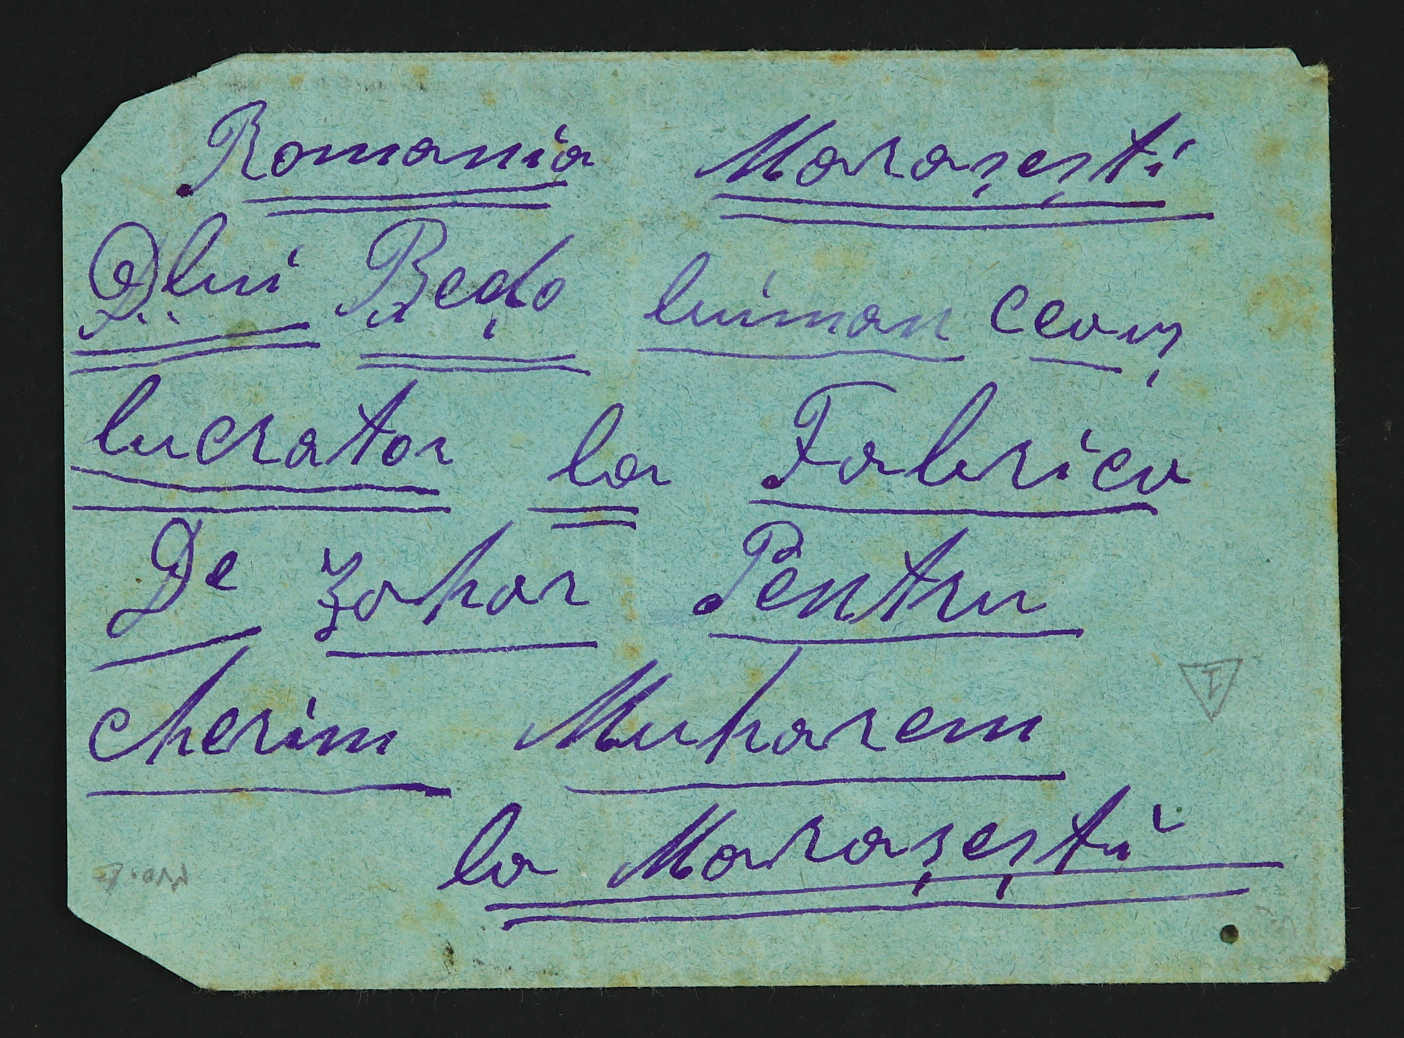 Romania Marașești
Dlui Bedo luiman ceauș
lucrator la Fabrica
De zahar Pentru
cherim Muharem
T
la Marașești